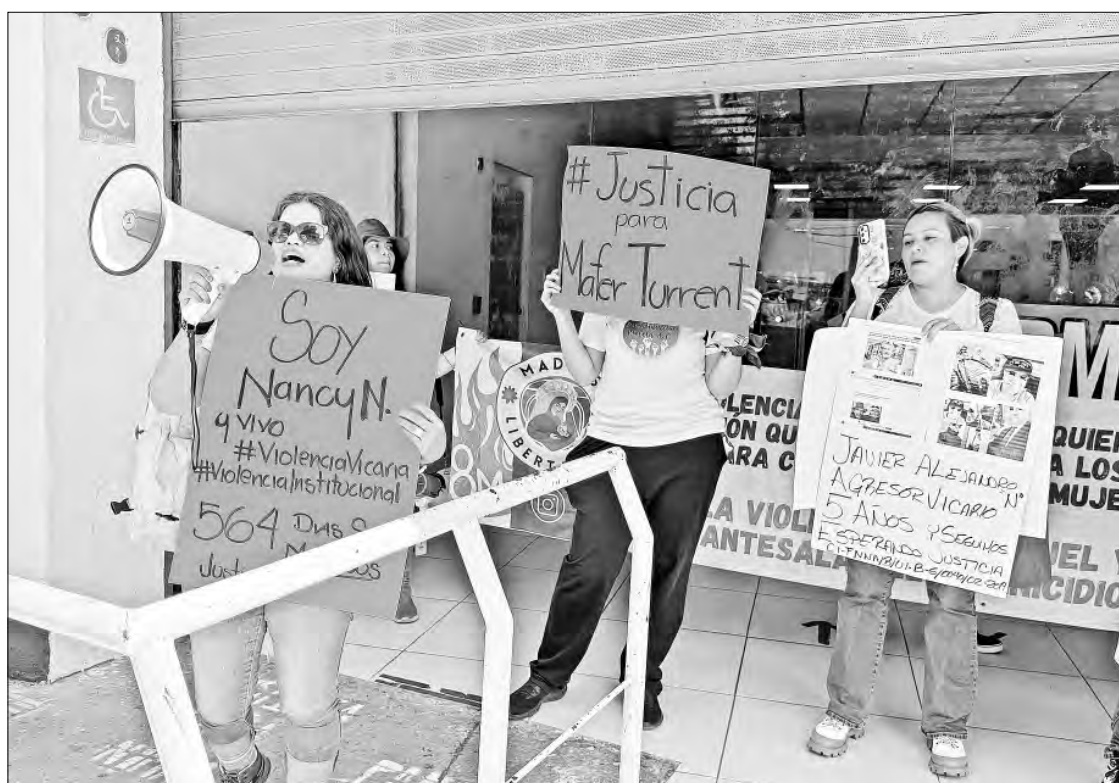 Soy
Nancy N.
y vivo
#ViolenciaVicaria
#ViolenciaInstitucional
564 Días
# Justicia
para
Mafer Turrent
MAD
LIBERT
8M
JAVIER ALEJANDRO "N"
AGRESOR VICARIO
5 AÑOS Y SEGUIMOS
ESPERANDO JUSTICIA
LENCIA
ÓN QU
ARA C
QUIER
A LOS
MUJE
LA VIOL
UEL Y
ANTESALA
ICIDIO